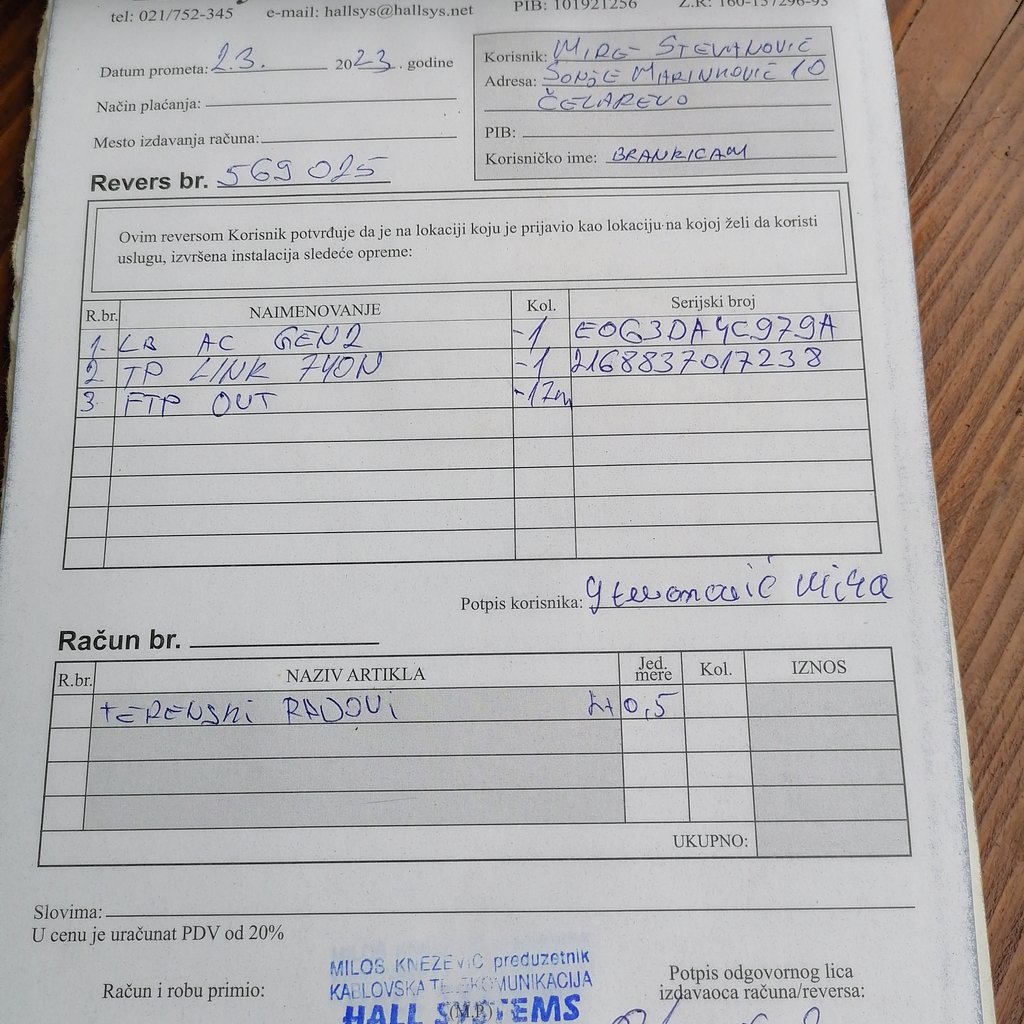 tel: 021/752-345 e-mail: hallsys@hallsys.net PIB: 101921256 Z.R: 160-157296-93
Datum prometa: 2.3. 2023. godine
Način plaćanja:
Mesto izdavanja računa:
Revers br. 569025
Korisnik: MIRE STEVANOVIĆ
Adresa: SONJE MARINKOVIĆ 10
ČELAREVO
PIB:
Korisničko ime: BRANKICAM
Ovim reversom Korisnik potvrđuje da je na lokaciji koju je prijavio kao lokaciju na kojoj želi da koristi
uslugu, izvršena instalacija sledeće opreme:
R.br. NAIMENOVANJE Kol. Serijski broj
1. LB AC GEN2 -1 E0G3DA4C979A
2 TP LINK 740N -1 2168837017238
3 FTP OUT -17m
Potpis korisnika: Stevanović Mira
Račun br.
R.br. NAZIV ARTIKLA Jed. mere Kol. IZNOS
TERENSKI RADOVI 0,5
UKUPNO:
Slovima:
U cenu je uračunat PDV od 20%
Račun i robu primio:
MILOS KNEZEVIC preduzetnik
KABLOVSKA TELEKOMUNIKACIJA
HALL SYSTEMS
(M.P.)
Potpis odgovornog lica
izdavaoca računa/reversa: